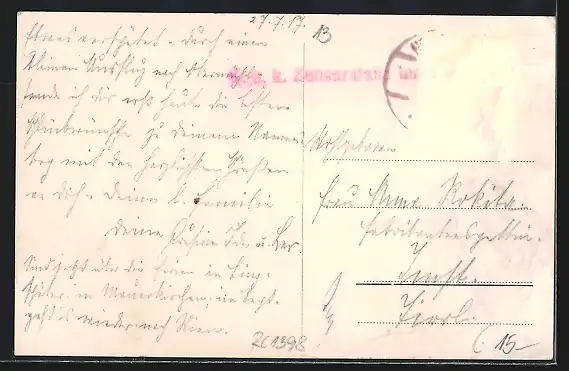 27.7.17.
13
Etwas verspätet - durch einen
kleinen Ausflug nach
sende ich dir erst heute die besten
Glückwünsche zu deinem Namens-
tag mit den herzlichsten Grüßen
an dich u. deine l. Familie
deine Cousine Ida u.
Sind jetzt über die Ferien in
später in Mauerkirchen, im Sept.
geht's wieder nach Wien.
k. k. Zensurstelle
Wohlgeboren
Frau Anna Rokita
Fabrikantensgattin.
Imst.
Tirol.
RC1398
15-